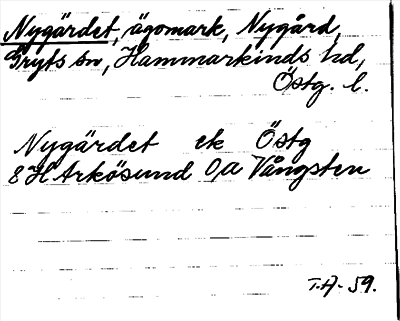 Nygärdet, ägomark, Nygård,
Gryts sn, Hammarkinds hd,
Östg. l.
Nygärdet ek Östg
8 H Arkösund 0,a Vångsten
T.A. 59.